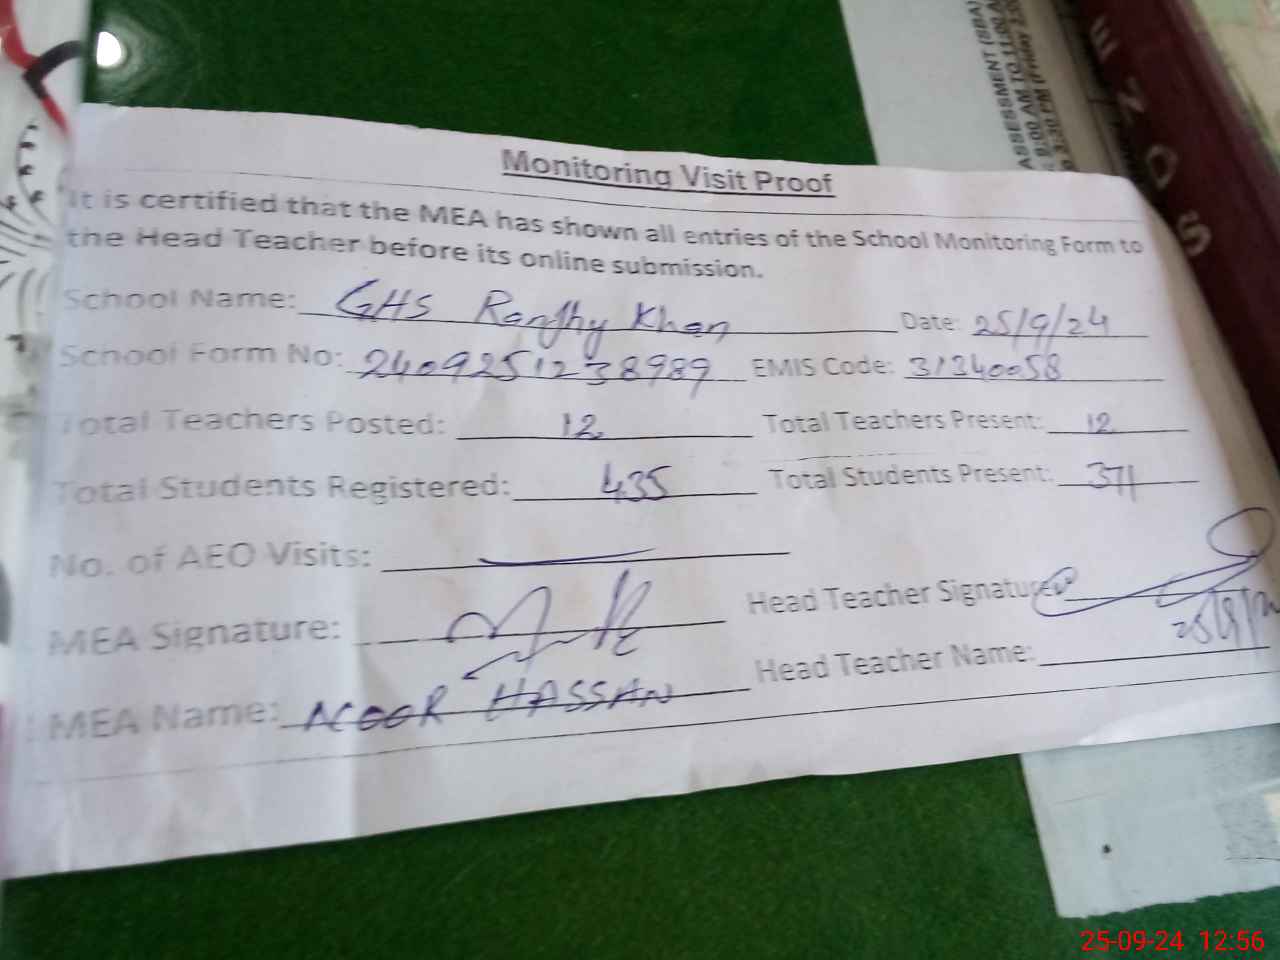 Monitoring Visit Proof
It is certified that the MEA has shown all entries of the School Monitoring Form to
the Head Teacher before its online submission.
School Name: GHS Khan Date: 25/9/24
School Form No: 2409251238989 EMIS Code: 31340058
Total Teachers Posted: 12 Total Teachers Present: 12
Total Students Registered: 435 Total Students Present: 371
No. of AEO Visits:
MEA Signature: Head Teacher Signature:
MEA Name: NOOR HASSAN Head Teacher Name:
ASSESSMENT (SBA)
8:00 AM TO 11:00 A
3:30 PM (Friday
25-09-24 12:56